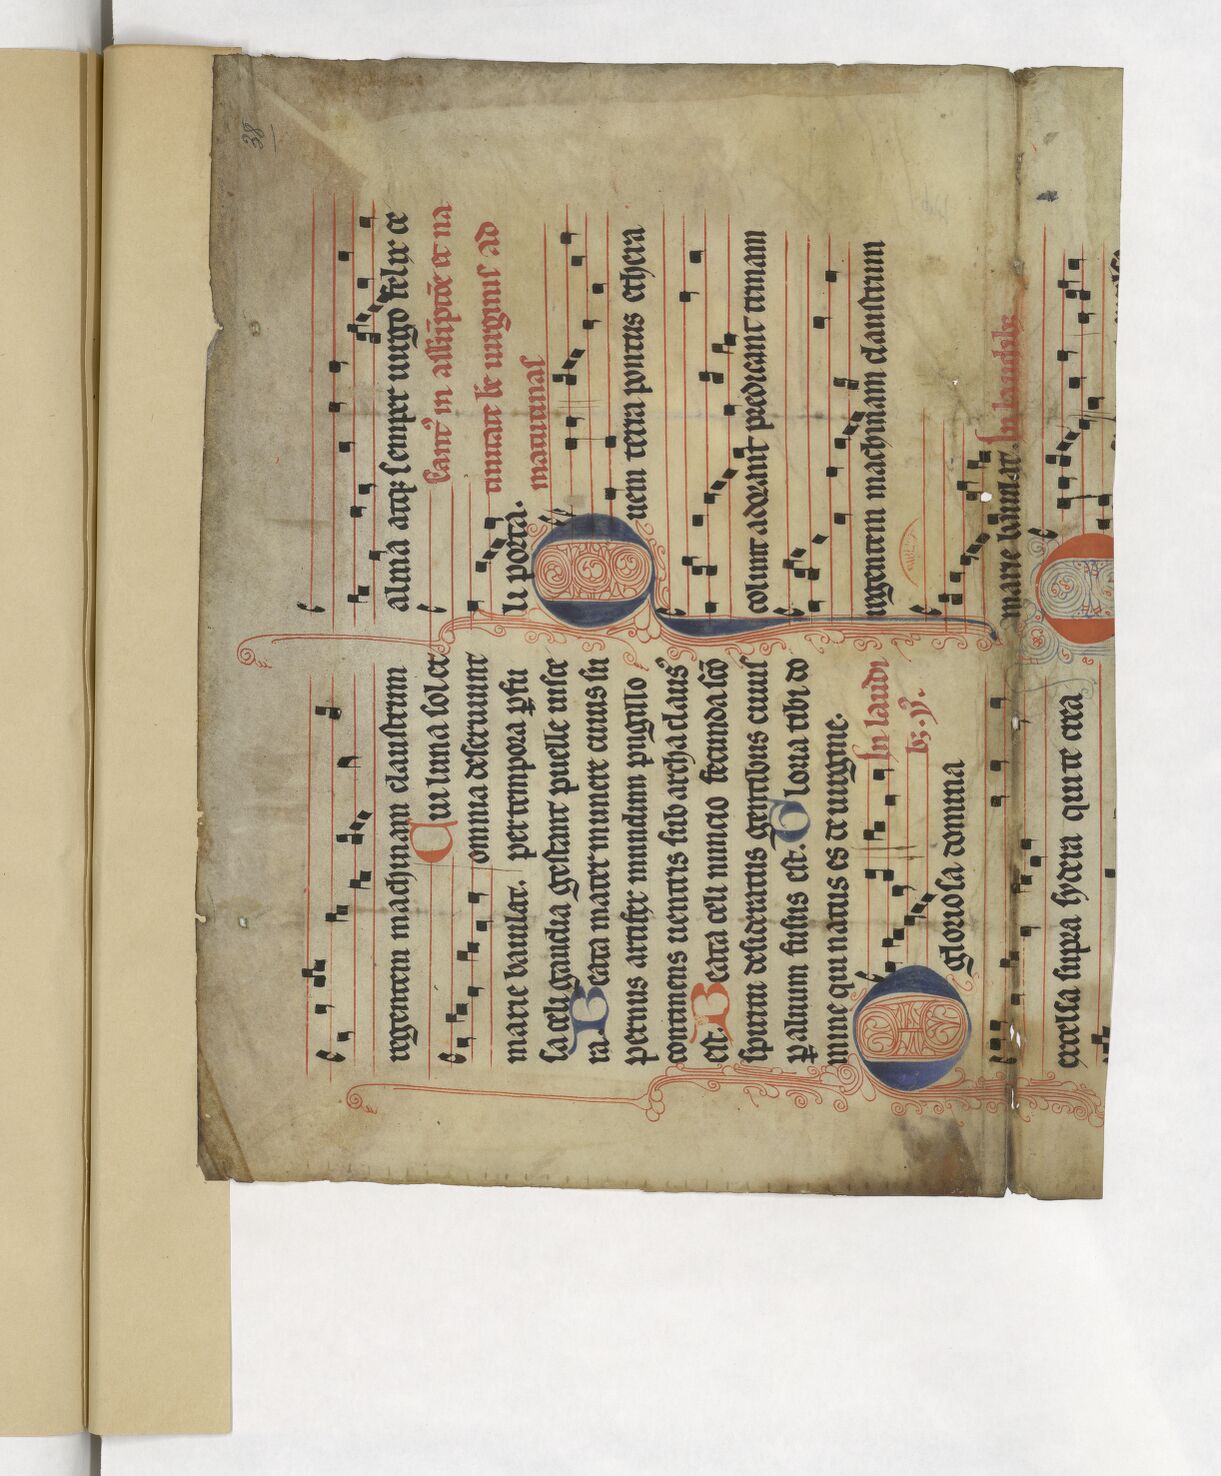 38
regentem machinam claustrum
Cui luna sol et
omnia deseruiunt
marie baiulat. per tempora ꝑfu
sa celi gaudia gestant puelle uisce
ra. Beata mater munere cuius su
pernus artifex mundum pugillo
continens uentris sub archa claus9
est. Beata celi nuncio fecunda sc̄o
spiritu desideratus gentibus cuius
ꝑ aluum fusus est. Gloria tibi do
mine qui natus es de uirgine.
In laudi
bꝫ. ẏ.
O gloriosa domina
excelsa supra sydera qui te crea
alma atqꝫ semper uirgo felix ce
li porta.
in assūptōe et na
tiuitate bē uirginis ad
matutinas
Quem terra pontus ethera
colunt adorant predicant trinam
regentem machinam claustrum
marie baiulat. In laudibꝫ